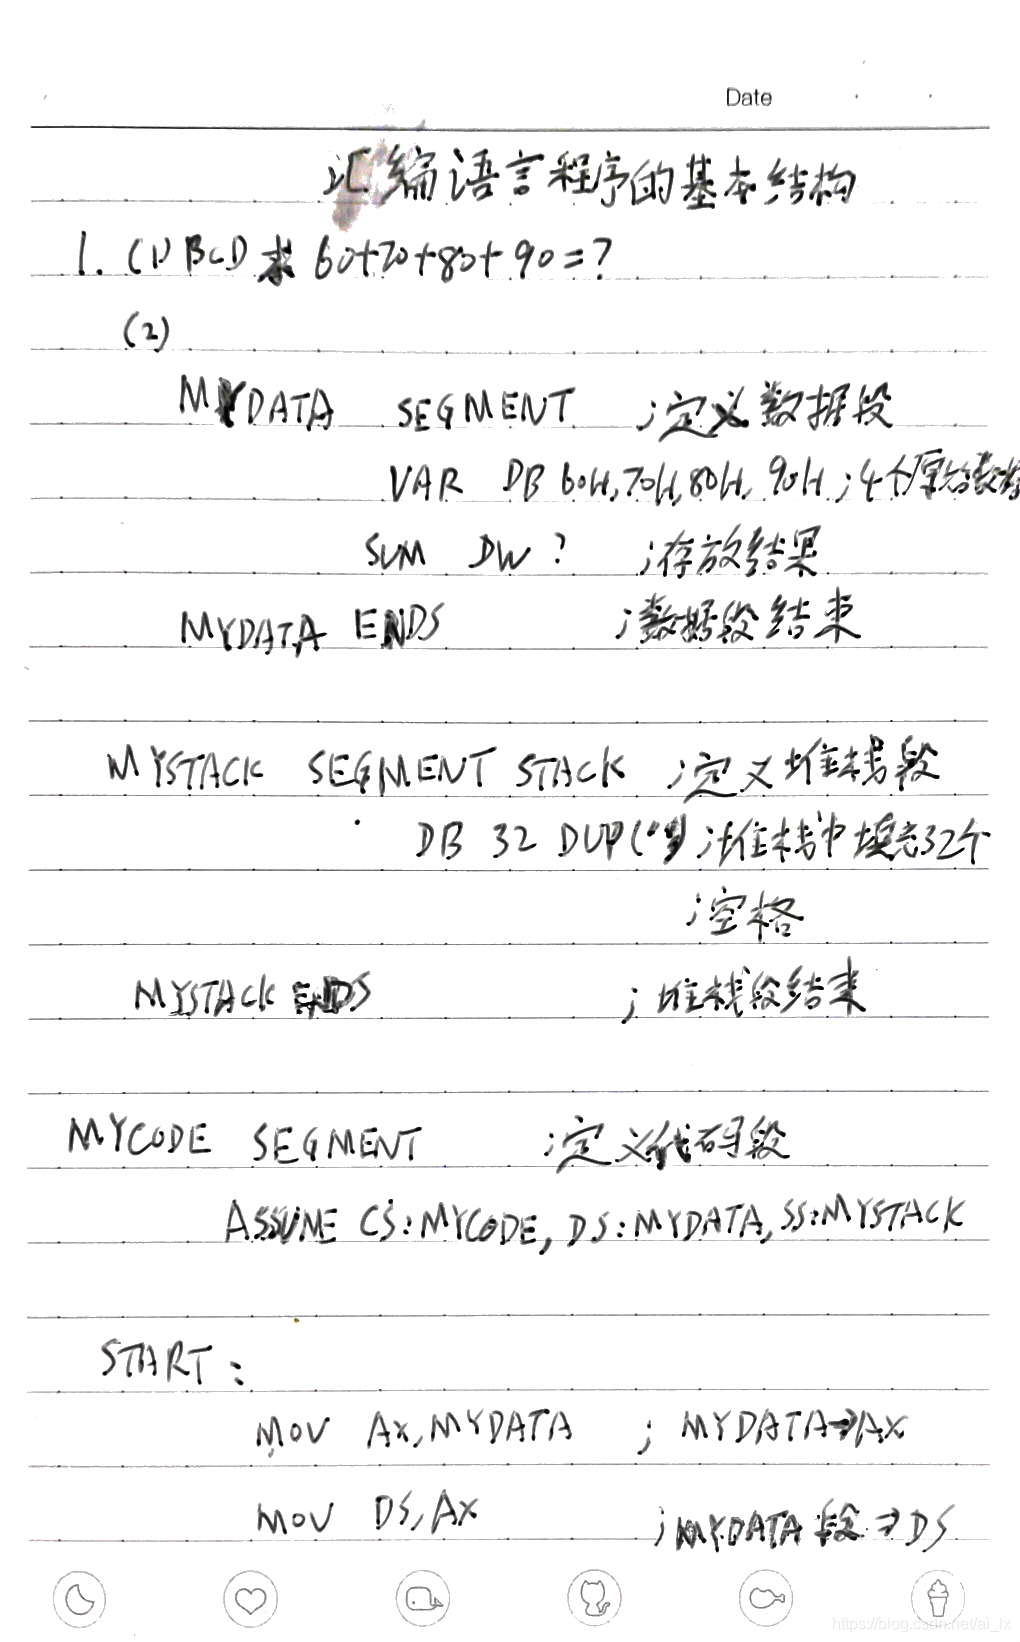 Date
汇编语言程序的基本结构
1. (1) BCD 求 60+70+80+90=?
(2)
MYDATA SEGMENT ;定义数据段
VAR DB 60H,70H,80H, 90H ;4个原始数据
SUM DW ? ;存放结果
MYDATA ENDS ;数据段结束
MYSTACK SEGMENT STACK ;定义堆栈段
DB 32 DUP( ;堆栈中填充32个
;空格
MYSTACK ENDS ;堆栈段结束
MYCODE SEGMENT ;定义代码段
ASSUME CS:MYCODE, DS:MYDATA, SS:MYSTACK
START:
MOV AX, MYDATA ; MYDATA→AX
MOV DS, AX ;MYDATA 段→DS
https://blog.csdn.net/ai_lx